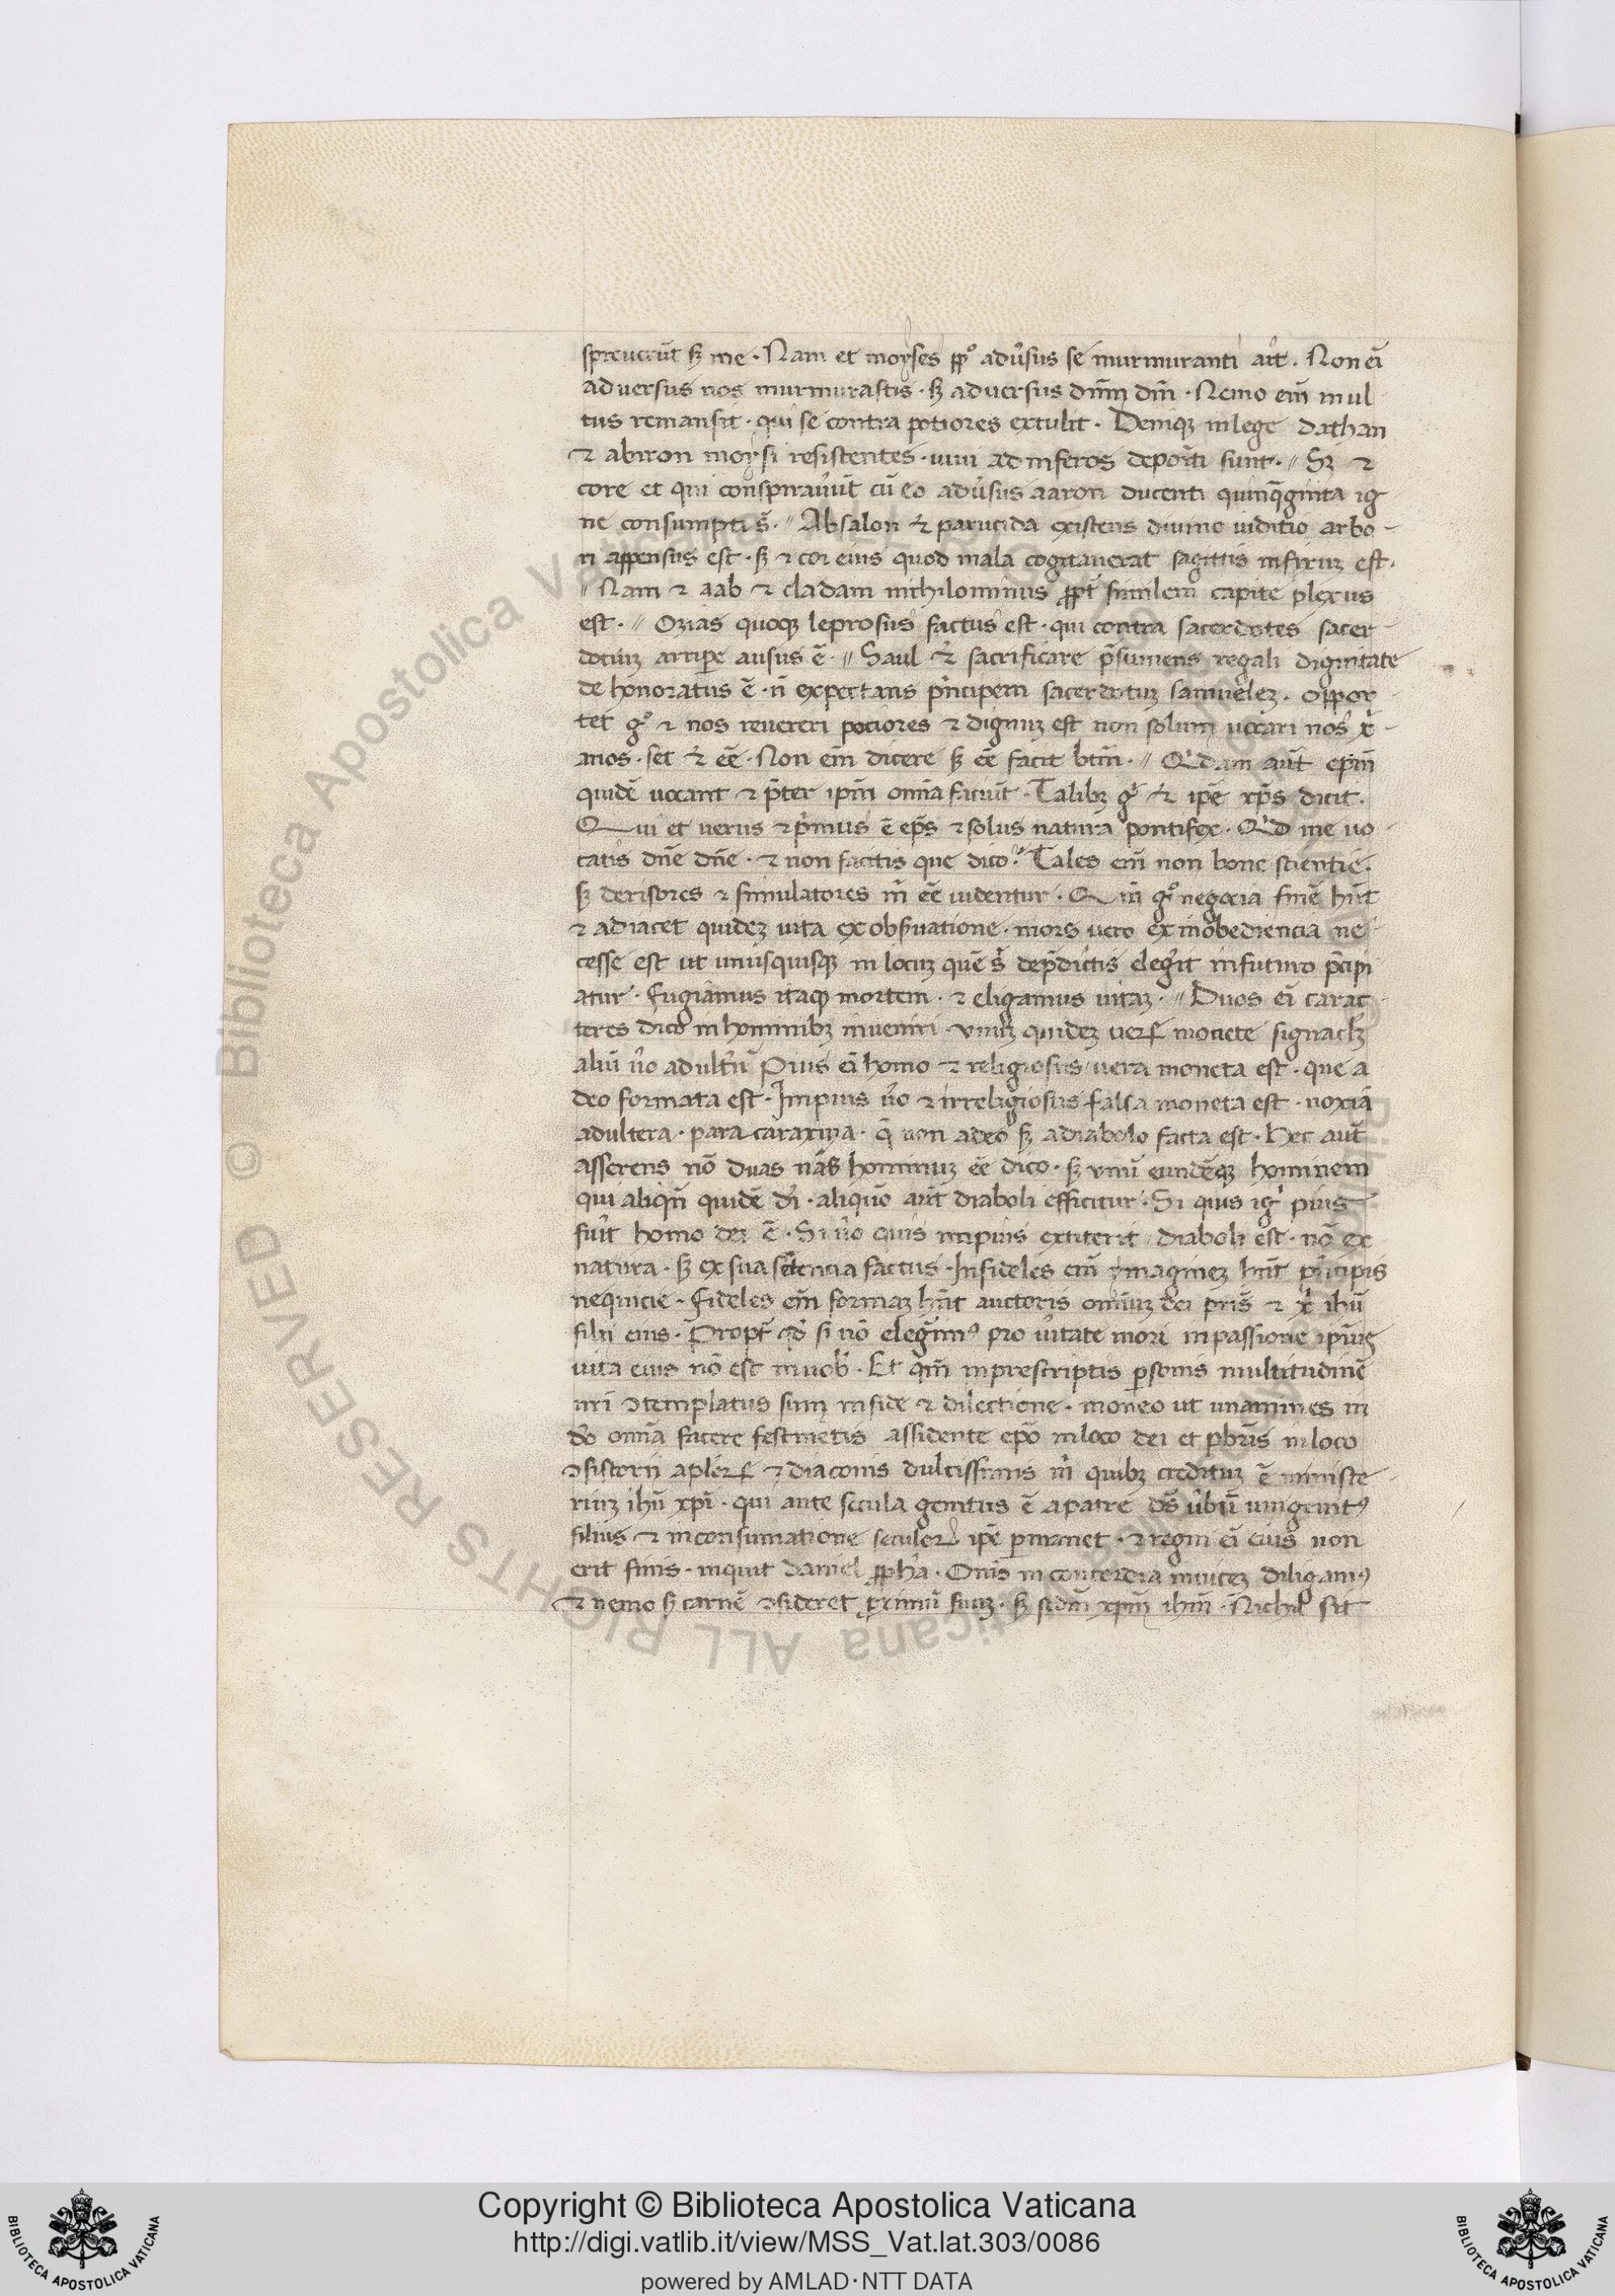 spreuerūt sꝫ me · Nam et moyses ppᵒ adūsus se murmuranti ait . Non eī
adversus nos murmurastis · sꝫ adversus dnm dm̄ · Nemo em̄ mul
tus remansit · qui se contra potiores extulit · Deniqꝫ in lege dathan
⁊ abiron moysi resistentes · uiui ad inferos depoti sunt · // Sꝫ ⁊
core et qui conspirauūt cū eo adūsus aaron ducenti quinq̄ginta ig
ne consumpti s̄ · // Absalon ⁊ parricida existens diuino iuditio arbo-
ri appensus est · sꝫ ⁊ cor eius quod mala cogitauerat sagittis infixuꝫ est ·
// Nam ⁊ aab ⁊ cladam nichilominus ꝓpt similem capite plexus
est · // Ozias quoqꝫ leprosus factus est · qui contra sacerdotes sacer-
dotiuꝫ arripe ausus ē · // Saul ⁊ sacrificare p̄sumens regali dignitate
de honoratus ē · n̄ expectans p̄ncipem sacerdotuꝫ samueleꝫ · oppor-
tet gᵒ ⁊ nos reuereri potiores ⁊ dignuꝫ est non solum uocari nos xp̄-
anos · set ⁊ eē · Non em̄ dicere sꝫ eē facit btm̄ · // Qⁱdam aūt epm̄
quidē uocant ⁊ p̄ter ipm̄ omīa faciūt · Talibꝫ gᵒ ⁊ ipē xp̄s dicit ·
Qui et uerus ⁊ p̄mus ē ep̄s ⁊ solus natura pontifex · Qⁱd me uo
catis dn̄e dn̄e · ⁊ non facitis que dico · Tales em̄ non bone scientie ·
sꝫ derisores ⁊ simulatores m̄ eē uidentur · Qm̄ gᵒ negocia finē hn̄t
⁊ adiacet quideꝫ uita ex obs̄uatione · mors uero ex inobediencia ne-
cesse est ut unusquisqꝫ in locuꝫ quē s̄ dep̄dictis elegit in futuro p̄cipi
atur · Fugiamus itaqꝫ mortem · ⁊ eligamus uitaꝫ · // Duos eī carac-
teres dico in hominibꝫ inueniri · vnuꝫ quideꝫ uerꝭ monete signaclꝫ
aliū ūo adult̄ū Pius eī homo ⁊ religiosus uera moneta est · que a
deo formata est · Impius ūo ⁊ irreligiosus falsa moneta est · noxia
adultera · paracaraxina · q̄ non a deo sꝫ a diabolo facta est · Hec aūt
asserens nō duas nās hominuꝫ eē dico · sꝫ vnū eundēqꝫ hominem
qui aliqn̄ quidē di · aliqn̄o aūt diaboli efficitur · Si quis igⁱ pius
fūit homo dei ē · Si ūo quis impius extiterit diaboli est · nō ex
natura · sꝫ ex sua sentencia factus · Infideles em̄ ymagineꝫ hn̄t p̄ncipis
nequicie · Fideles em̄ formaꝫ hn̄t auctoris omīuꝫ dei pr̄is ⁊ xⁱ ihū
filii eius · Propt̄ qd̄ si nō elegim⁹ pro ūitate mori in passione ipiuꝫ
uita eius nō est in uob · Et qm̄ in prescriptis p̄sonis multitudinē
uri ꝯtemplatus sum in fide ⁊ dilectione · moneo ut unamines in
dō omīa facere festinetis assidente ep̄o in loco dei et pbr̄is in loco
ꝯsistorii aplōrꝝ ⁊ diaconis dulcissimis m̄ quibꝫ credituꝫ ē ministe-
riuꝫ ihū xpī · qui ante secula genitus ē a patre ds̄ ūbū unigenit⁹
filius ⁊ in consumatione seculorꝝ ipē p̄manet · ⁊ regni eī eius non
erit finis · inquit daniel ꝓpha · Oms in concordia inuiceꝫ diligam⁹
⁊ nemo s̄ carnē ꝯsideret ꝓximū suuꝫ · sꝫ scdm xpm̄ ihm̄ · Nichil sit
Copyright © Biblioteca Apostolica Vaticana
http://digi.vatlib.it/view/MSS_Vat.lat.303/0086
powered by AMLAD·NTT DATA
BIBLIOTECA APOSTOLICA VATICANA
BIBLIOTECA APOSTOLICA VATICANA
© Biblioteca Apostolica Vaticana ALL RIGHTS RESERVED